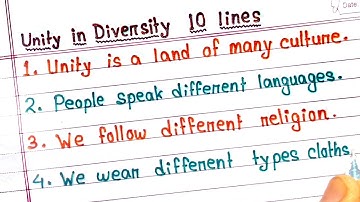 Date
Unity in Diversity 10 lines
1. Unity is a land of many culture.
2. People speak different languages.
3. We follow different religion.
4. We wear different types cloths